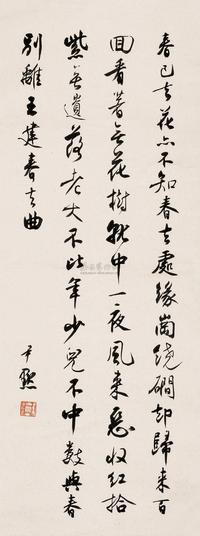 春已去花亦不知春去處緣岡繞磵却歸来百
回看著無花樹就中一夜風来惡收紅拾
紫無遺落老大不比年少兒不中數與春
別離王建春去曲
尹默